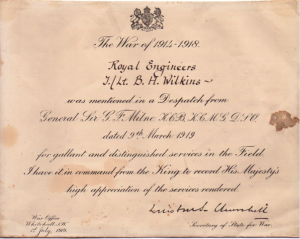 The War of 1914-1918.
Royal Engineers
T/Lt. B. H. Wilkins
was mentioned in a Despatch from
General Sir G. F. Milne K.C.B. K.C.M.G. D.S.O.
dated 9th March 1919
for gallant and distinguished services in the Field.
I have it in command from the King to record His Majesty's
high appreciation of the services rendered.
Winston S. Churchill
War Office
Whitehall, S.W.
Secretary of State for War.
July, 1919.